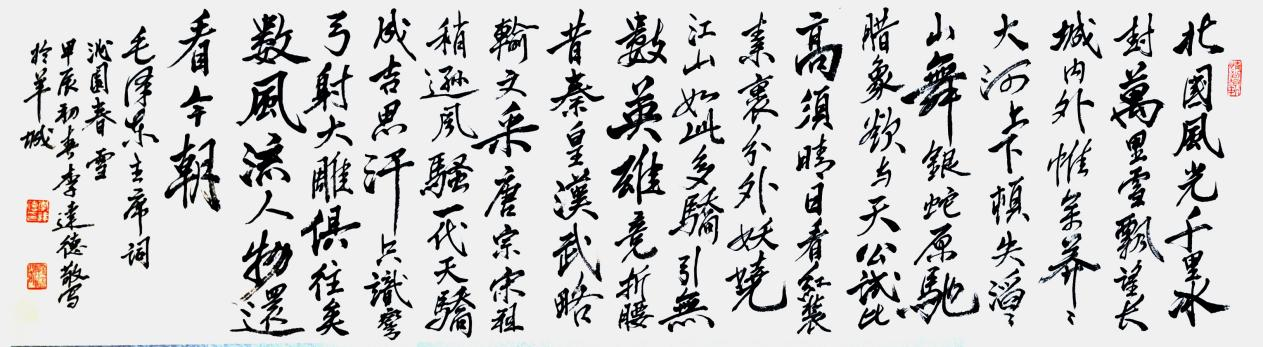 北國風光千里冰
封萬里雪飄望长
城内外惟余莽〻
大河上下頓失滔〻
山舞銀蛇原馳
腊象欲与天公試比
高須晴日看红裝
素裹分外妖嬈
江山如此多驕引無
數英雄竞折腰
昔秦皇漢武略
輸文采唐宗宋祖
稍遜風騷一代天驕
成吉思汗只識彎
弓射大雕俱往矣
数風流人物還
看今朝
毛泽东主席词
沁園春雪
甲辰初春李達德敬写
於羊城